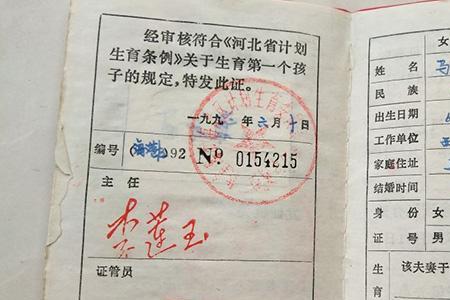 经审核符合《河北省计划
生育条例》关于生育第一个孩
子的规定，特发此证。
一九九 年六月十日
编号 92 Nº 0154215
主任
李莲玉
证管员
女
姓名 马
民族
出生日期
工作单位
家庭住址
结婚时间
身份 女
证号 男
生育 该夫妻于